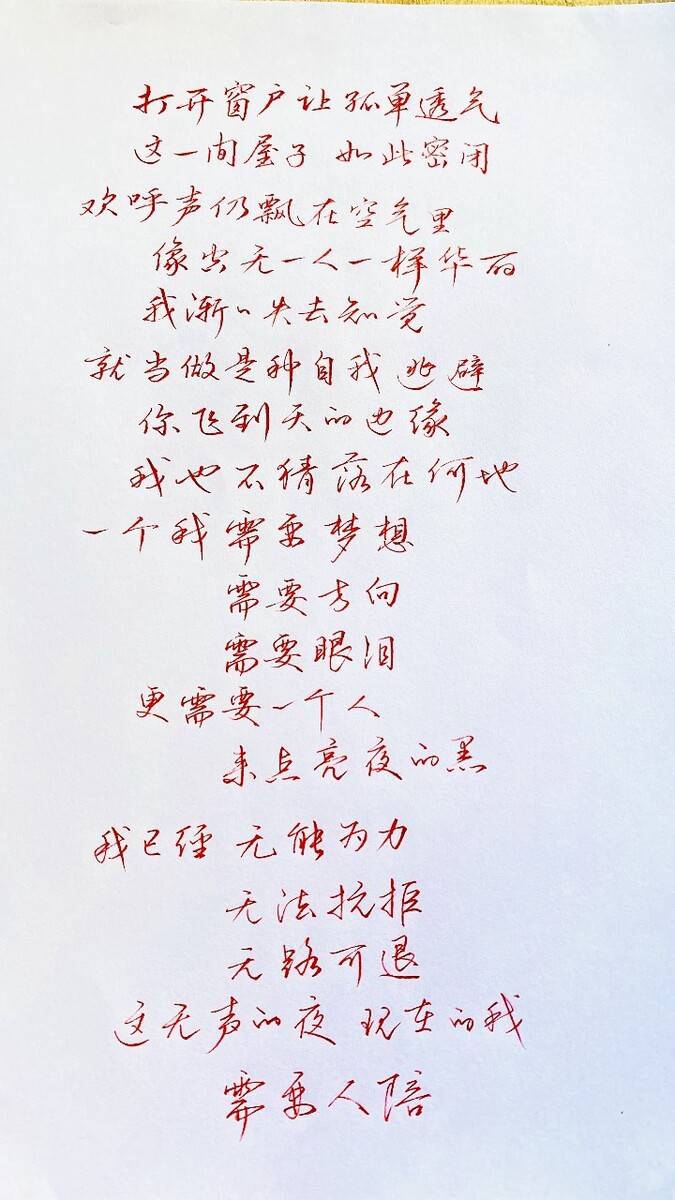 打开窗户让孤单透气
这一间屋子 如此密闭
欢呼声仍飘在空气里
像空无一人一样华丽
我渐渐失去知觉
就当做是种自我逃避
你飞到天的边缘
我也不猜落在何地
一个我需要梦想
需要方向
需要眼泪
更需要一个人
来点亮夜的黑
我已经 无能为力
无法抗拒
无路可退
这无声的夜 现在的我
需要人陪